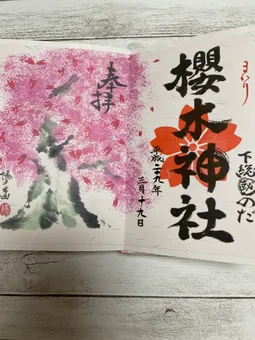 まいり
櫻木神社
下総國のだ
平成二十九年
三月十九日
奉拝